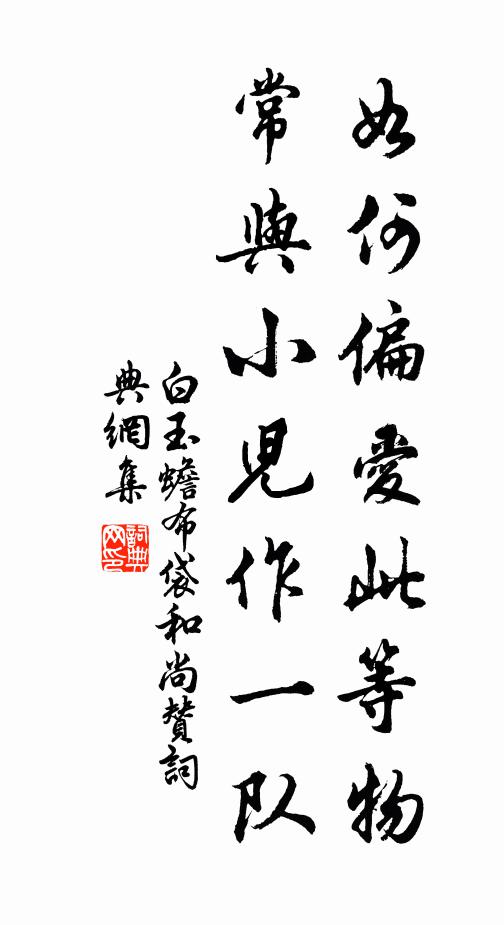 如何偏愛此等物
常與小兒作一队
白玉蟾布袋和尚贊詞
典網集
詞典網印